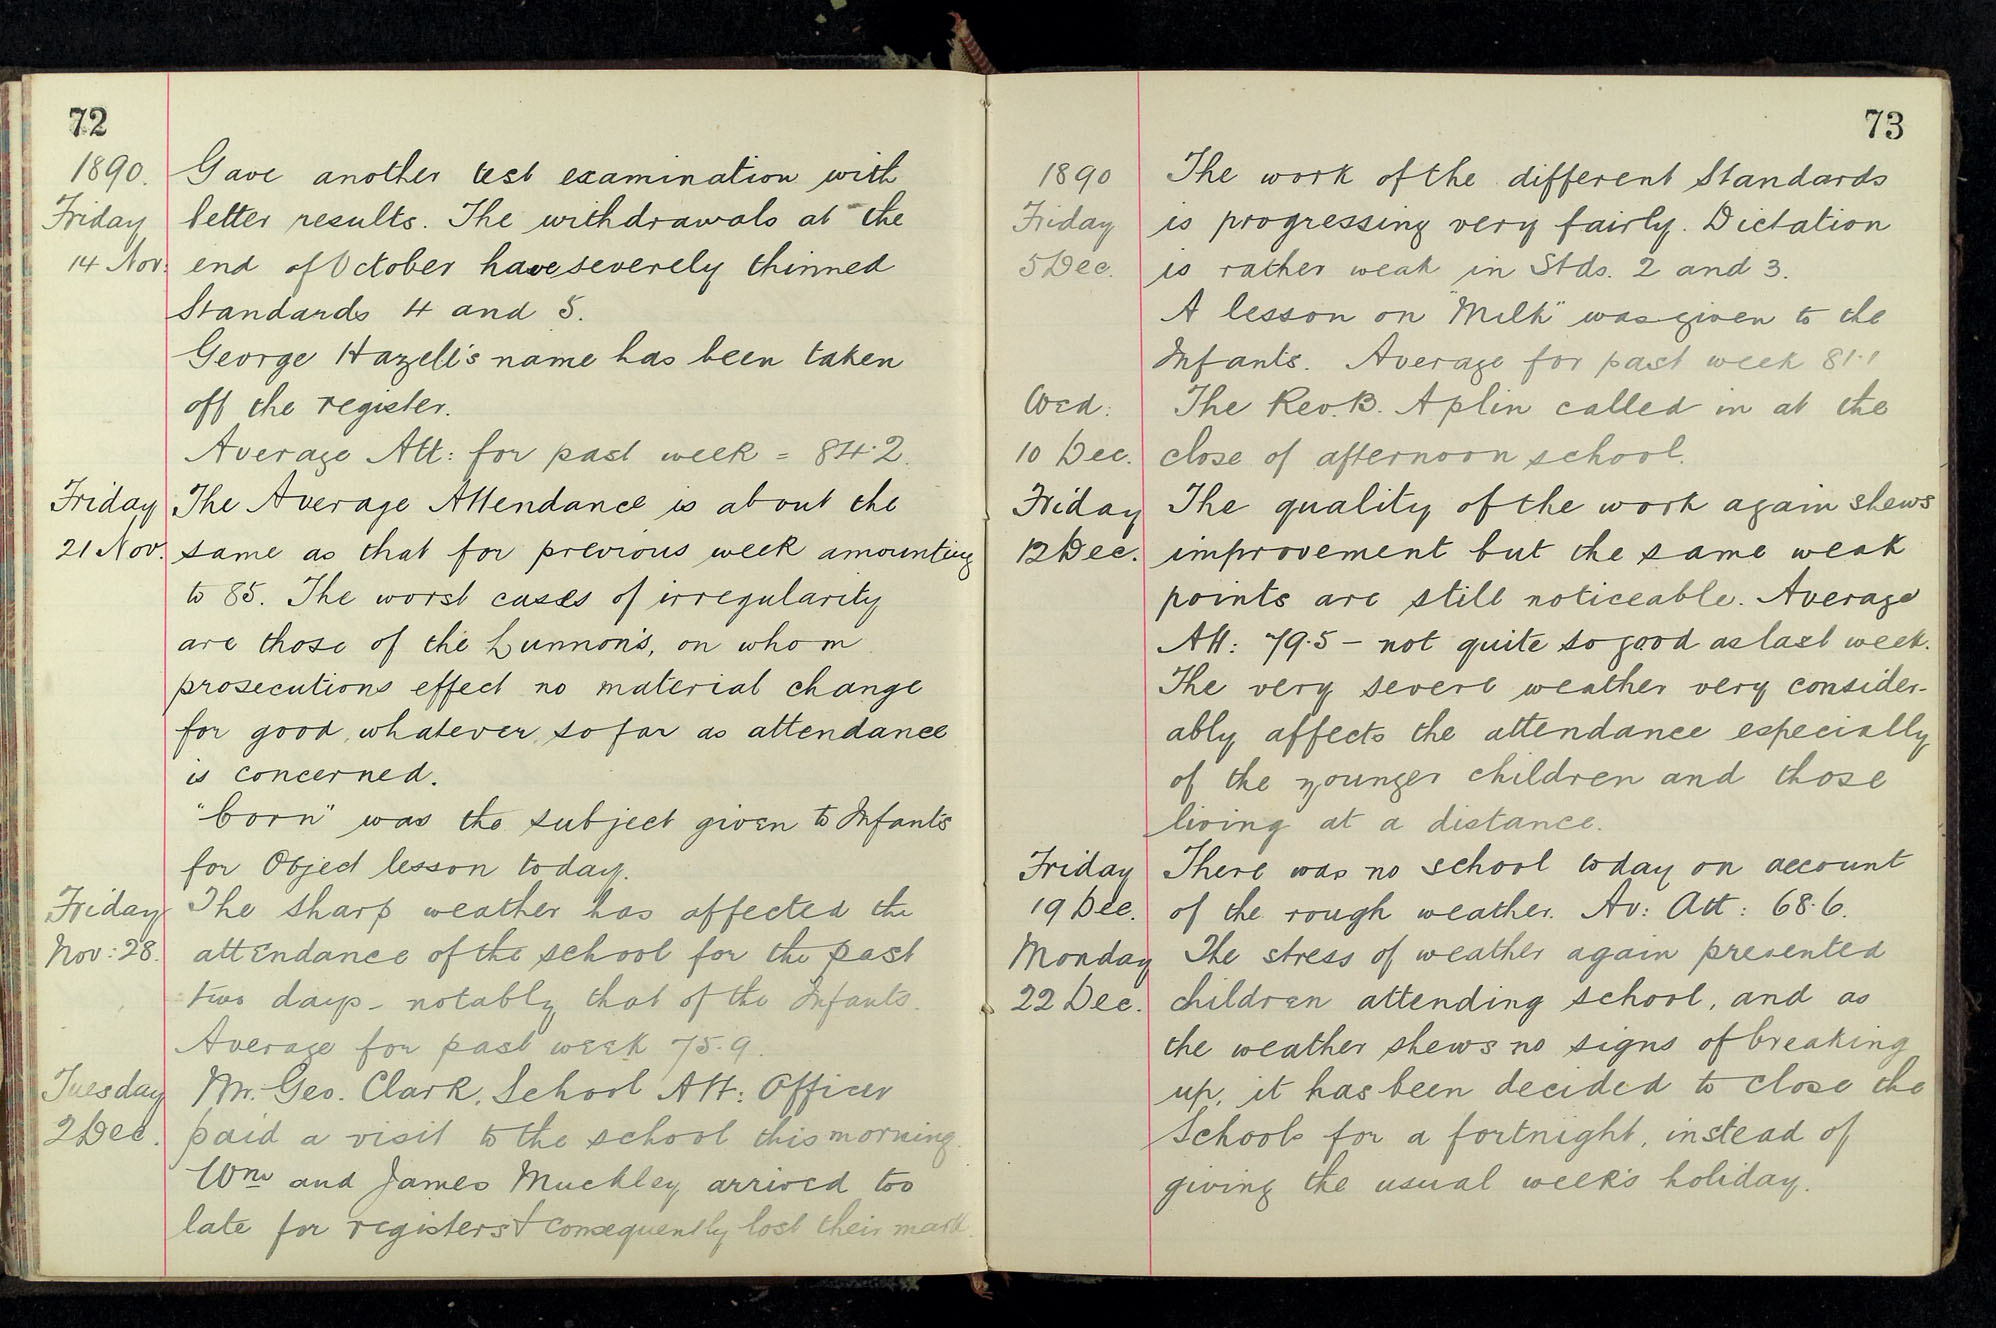 72
1890. Gave another test examination with
Friday better results. The withdrawals at the
14 Nov: end of October have severely thinned
Standards 4 and 5.
George Hazell's name has been taken
off the register.
Average Att: for past week = 84.2.
Friday The Average Attendance is about the
21 Nov. same as that for previous week amounting
to 85. The worst cases of irregularity
are those of the Lunnon's, on whom
prosecutions effect no material change
for good whatever so far as attendance
is concerned.
"Corn" was the subject given to Infants
for Object lesson today.
Friday The sharp weather has affected the
Nov: 28. attendance of the school for the past
two days - notably that of the Infants.
Average for past week 75.9.
Tuesday Mr. Geo. Clark, School Att: Officer
2 Dec. paid a visit to the school this morning.
Wm and James Muckley arrived too
late for registers & consequently lost their mark.
73
1890 The work of the different Standards
Friday is progressing very fairly. Dictation
5 Dec. is rather weak in Stds. 2 and 3.
A lesson on "Milk" was given to the
Infants. Average for past week 81.1
Wed: The Rev. B. Aplin called in at the
10 Dec. close of afternoon school.
Friday The quality of the work again shews
12 Dec. improvement but the same weak
points are still noticeable. Average
Att: 79.5 - not quite so good as last week.
The very severe weather very consider-
ably affects the attendance especially
of the younger children and those
living at a distance.
Friday There was no school today on account
19 Dec. of the rough weather. Av: Att: 68.6.
Monday The stress of weather again prevented
22 Dec. children attending school, and as
the weather shews no signs of breaking
up, it has been decided to close the
Schools for a fortnight, instead of
giving the usual week's holiday.